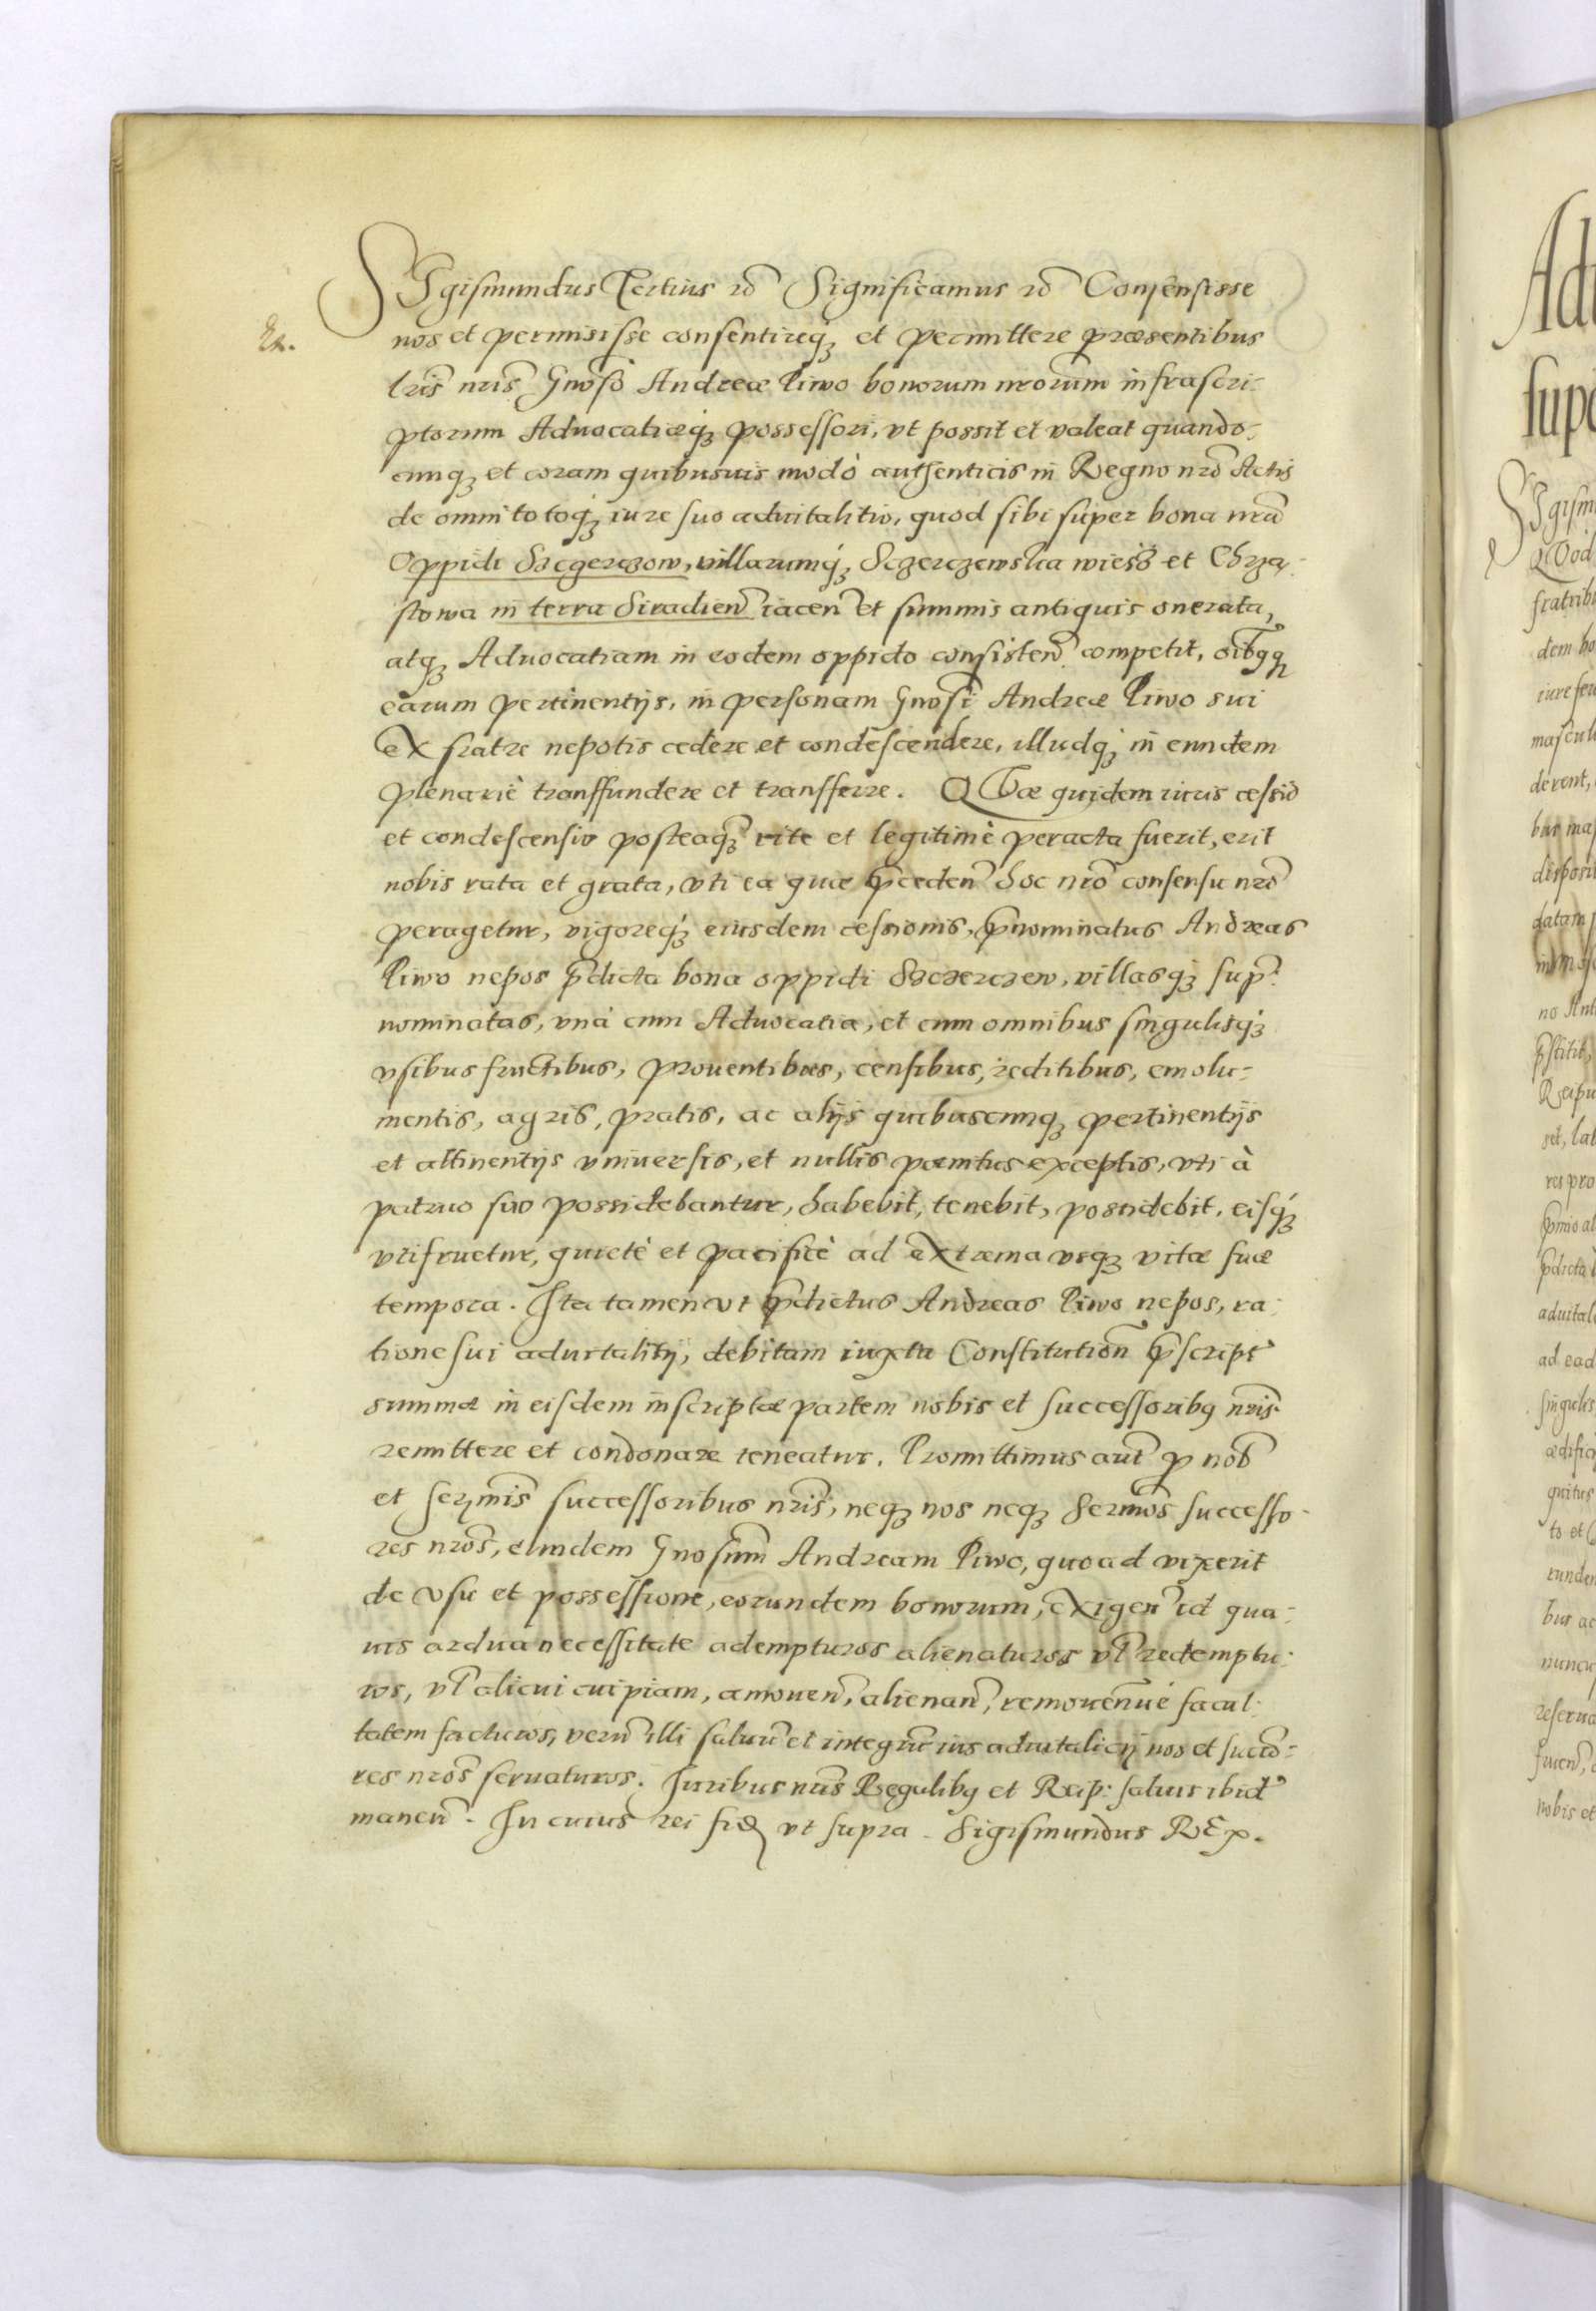 SIgismundus Tertius etc̃ Significamus etc̃ Consensisse
Ex.
nos et permisisse consentireq; et permittere præsentibus
lris nris Gnoso Andreæ Piwo bonorum nrorum infrascri-
ptorum Aduocatiæq; possessori, vt possit et valeat quando-
cunq; et coram quibusuis modò authenticis in Regno nro Actis
de omni totoq; iure suo aduitalitio, quod sibi super bona nra
Oppidi Sczerczow, villarumq; Sczerczewska wiesz et Chrza-
stowa in terra Siradien iacen et summis antiquis onerata,
atq; Aduocatiam in eodem oppido consisten competit, oibqq
earum pertinentijs, in personam Gnosi Andreæ Piwo sui
ex fratre nepotis cedere et condescendere, illudq; in eundem
plenariè transfundere et transferre. QVæ quidem iuris cessio
et condescensio posteaq̃ rite et legitimè peracta fuerit, erit
nobis rata et grata, vti ea quæ pcceden hoc nro consensu nro
peragetur, vigoreq; eiusdem cessionis, pnominatus Andreas
Piwo nepos pdicta bona oppidi Sczerczew, villasq; sup-
nominatas, vnà cum Aduocatia, et cum omnibus singulisq;
vsibus fructibus, prouentibus, censibus, reditibus, emolu-
mentis, agris, pratis, ac alijs quibuscunq; pertinentijs
et attinentijs vniuersis, et nullis pœnitus exceptis, vti à
patruo suo possidebantur, habebit, tenebit, possidebit, eisq;
vtifruetur, quietè et pacificè ad extrema vsq; vitæ suæ
tempora. Ita tamen vt pdictus Andreas Piwo nepos, ra-
tione sui aduitalitij, debitam iuxta Constitution pscript
summæ in eisdem inscriptæ partem nobis et successoribq nris
remittere et condonare teneatur. Promittimus aut p nob
et serminis successoribus nris, neq; nos neq; Sermos successo-
res nros, eundem Gnosum Andream Piwo, quoad vixerit
de vsu et possessione, eorundem bonorum, exigen id qua-
uis ardua necessitate adempturos alienaturos vl redemptu-
ros, vl alicui cuipiam, amouen, alienan, remouenue facul-
tatem facturos, veru illi saluu et integru ius aduitalicij nos et succo-
res nros seruaturos. Iuribus nris Regalibq et Reip: saluis ibid
manen. In cuius rei fid vt supra. Sigismundus REx.